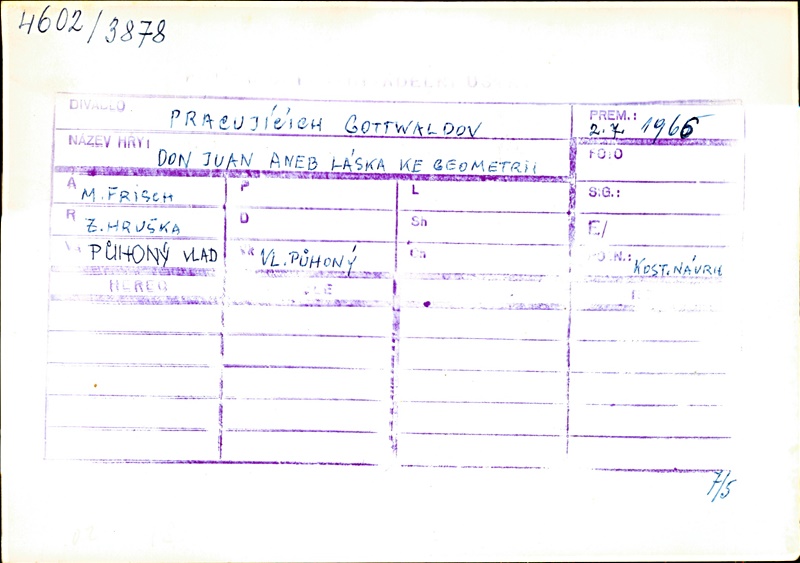 4602/3878
DIVADLO: PRACUJÍCÍCH GOTTWALDOV
PREM.: 2.7. 1966
NÁZEV HRY: DON JUAN ANEB LÁSKA KE GEOMETRII
FOTO
A M. FRISCH P L SIG.:
R Z. HRUŠKA D Sh E/
PŮHONÝ VLAD VL. PŮHONÝ KOST. NÁVRH
HEREC
7/5